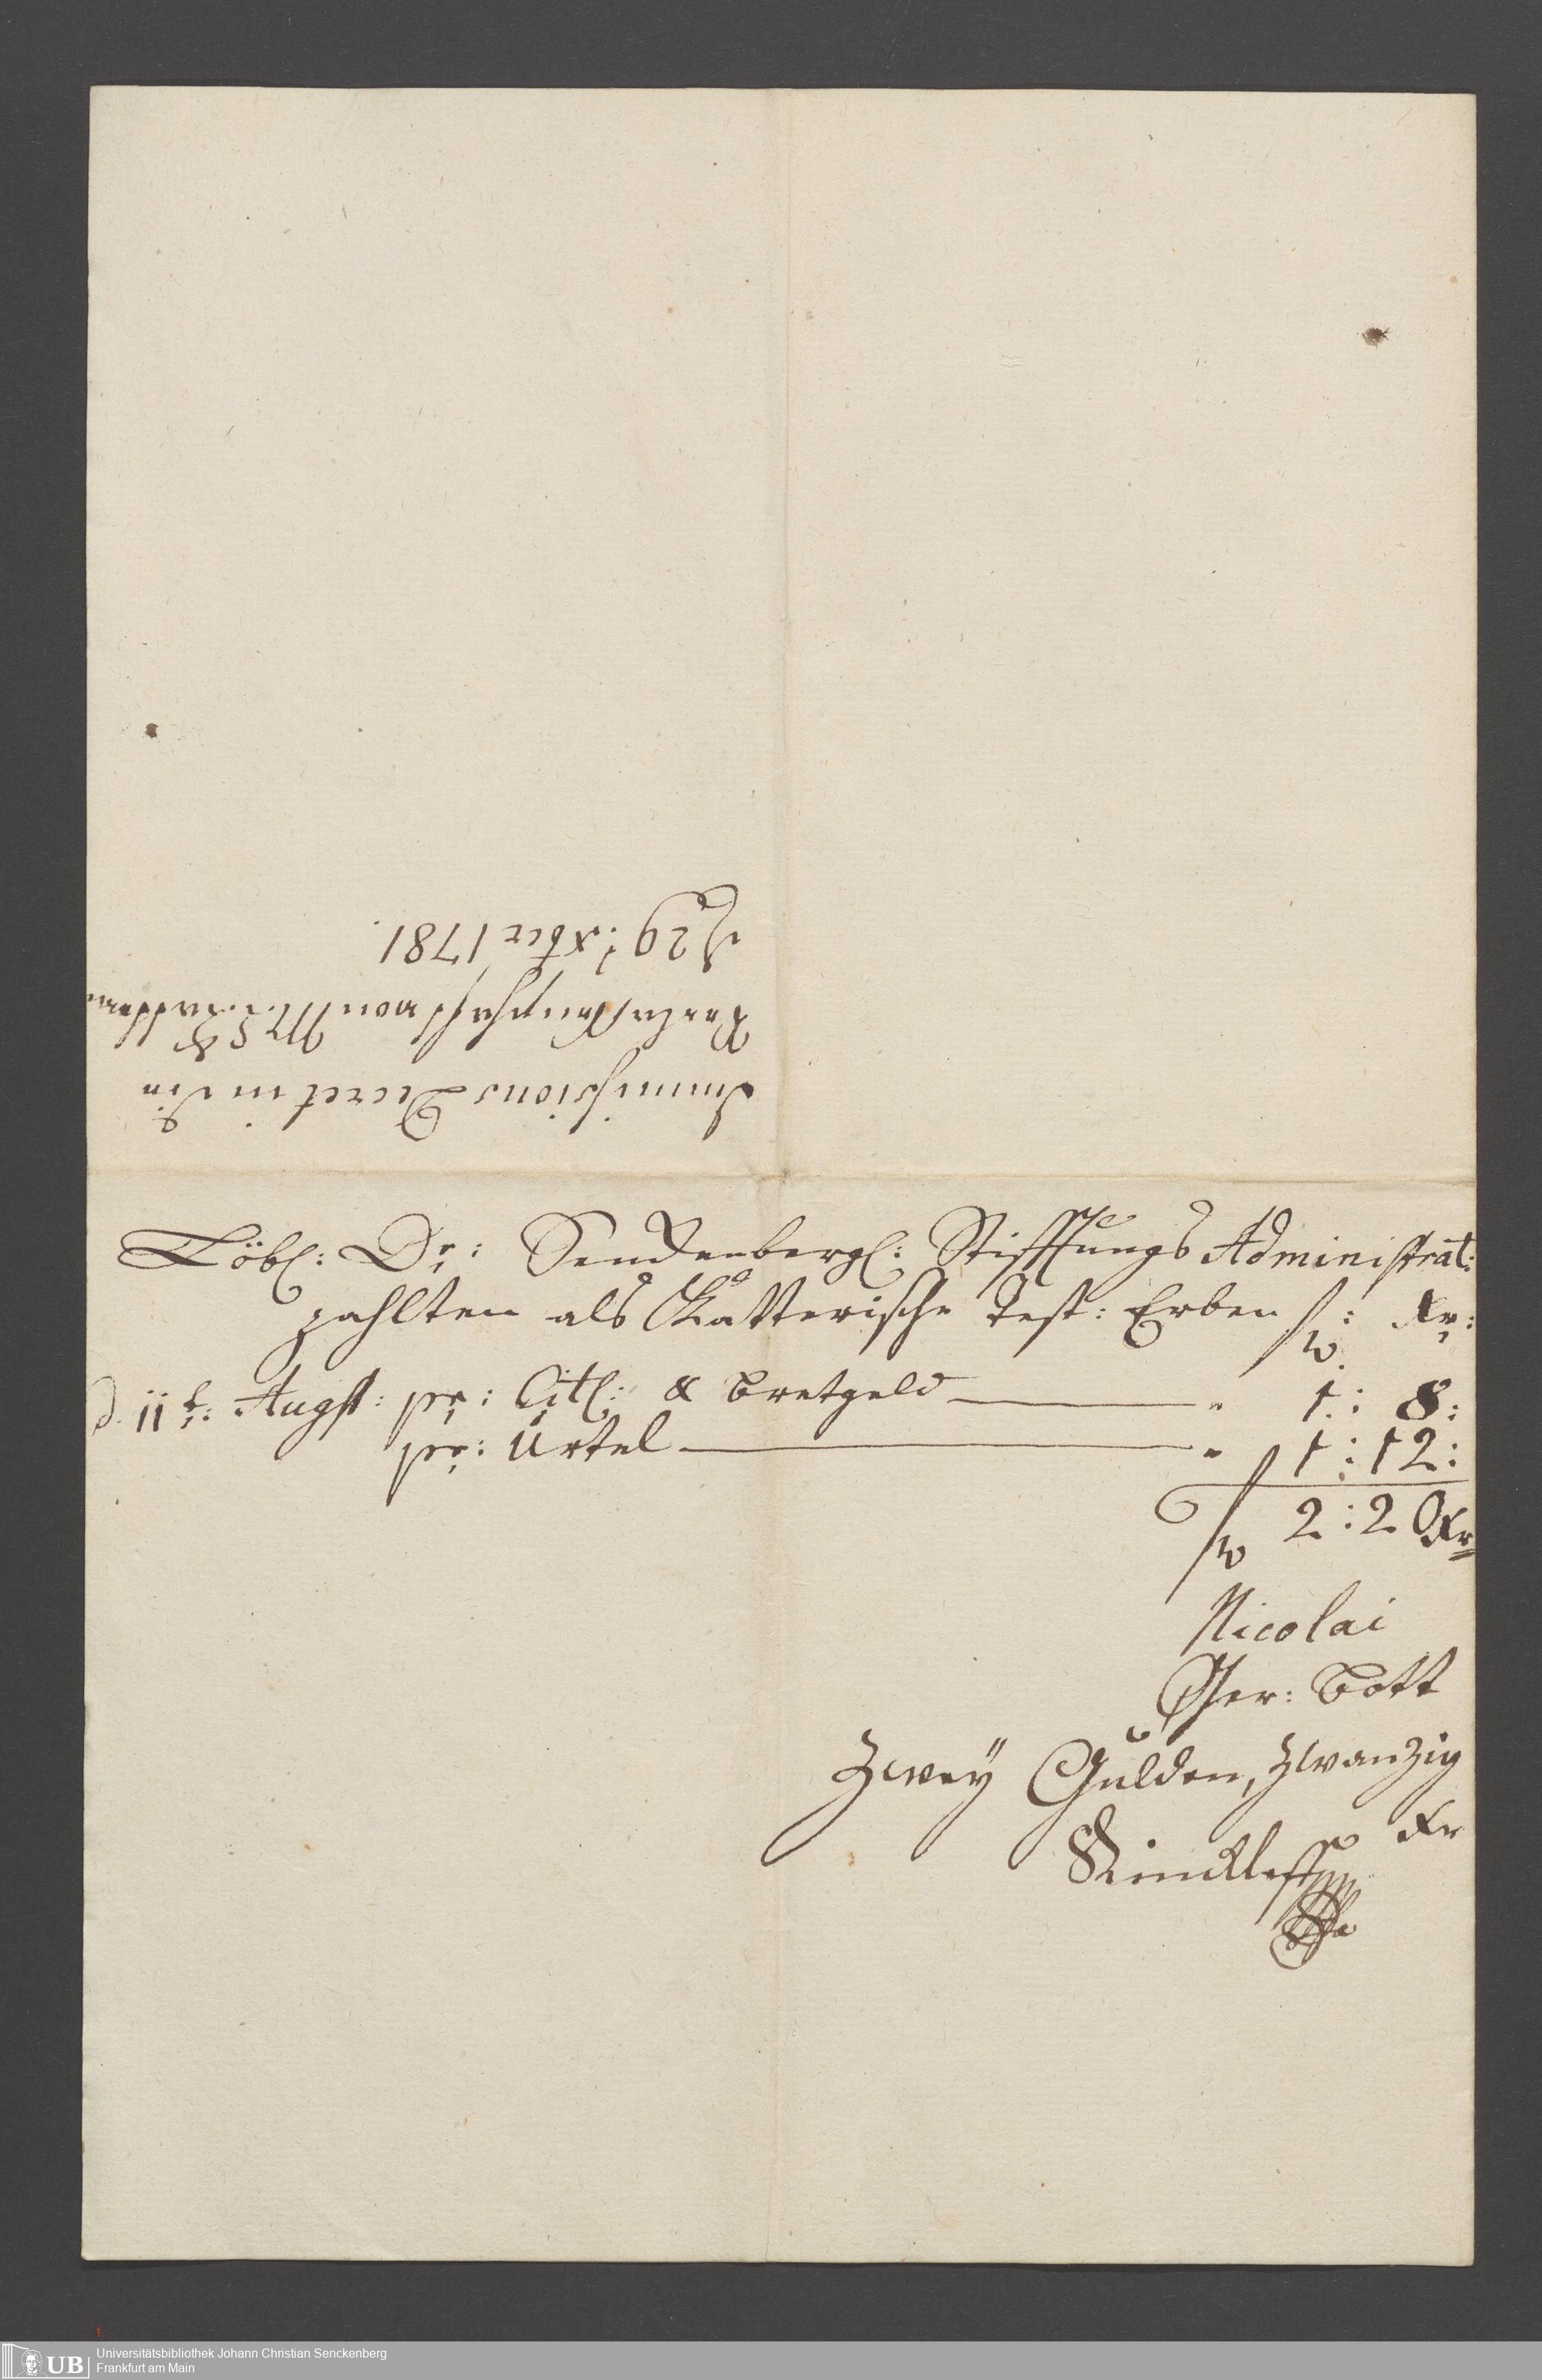 Immissions Decret in die
Verlassenschafft von M. S. Katterin
d 29t. xbr 1781.
Löbl: Dr: Senckenbergl: Stifftungs Administrat:
zahlten als Katterische Test: Erben f: Xr:
d. 11t: Augst: pr: Citl: & Bretgeld — " 1: 8:
pr: Urtel — " 1: 12:
f 2: 20 Xr
Nicolai
Ger: Bott
Zwey Gulden, Zwanzig
Xr
UB Universitätsbibliothek Johann Christian Senckenberg
Frankfurt am Main